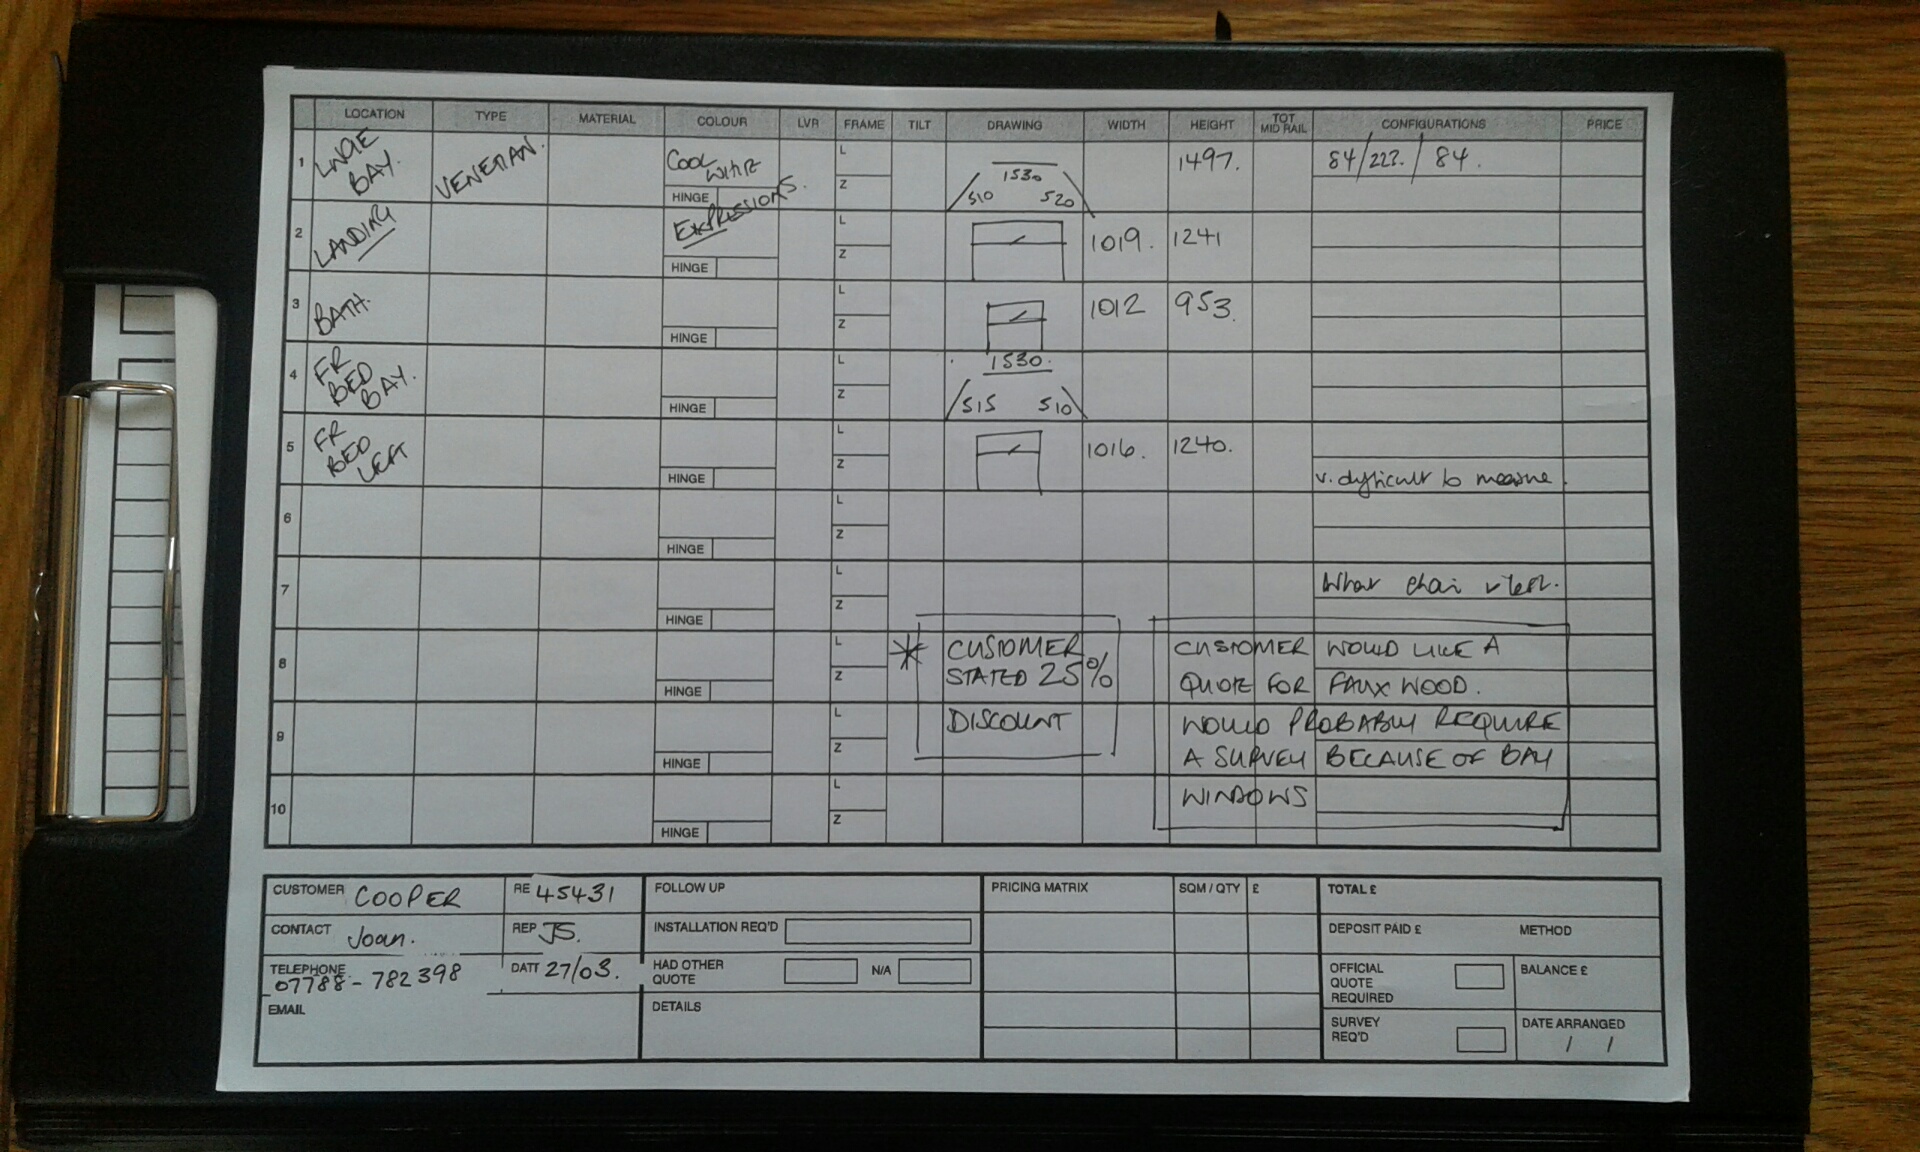 LOCATION TYPE MATERIAL COLOUR LVR FRAME TILT DRAWING WIDTH HEIGHT TOT MID RAIL CONFIGURATIONS PRICE
1 LNGE BAY. VENETIAN. COOL WHITE HINGE L Z 1530 510 520 1497. 84/227./84.
2 LANDING EXPRESSIONS. HINGE L Z 1019. 1241
3 BATH. HINGE L Z 1012 953.
4 FR BED BAY. HINGE L Z 1530. 515 510
5 FR BED LEFT HINGE L Z 1016. 1240. v. difficult to measure.
6 HINGE L Z
7 HINGE L Z What
8 HINGE L Z
9 HINGE L Z
10 HINGE L Z
* CUSTOMER
STATED 25%
DISCOUNT
CUSTOMER WOULD LIKE A
QUOTE FOR FAUX WOOD.
WOULD PROBABLY REQUIRE
A SURVEY BECAUSE OF BAY
WINDOWS
CUSTOMER COOPER RE 45431
CONTACT Joan. REP JS.
TELEPHONE 07788-782398 DATE 27/03.
EMAIL
FOLLOW UP
INSTALLATION REQ'D
HAD OTHER QUOTE N/A
DETAILS
PRICING MATRIX SQM / QTY £
TOTAL £
DEPOSIT PAID £ METHOD
OFFICIAL QUOTE REQUIRED BALANCE £
SURVEY REQ'D DATE ARRANGED
/ /